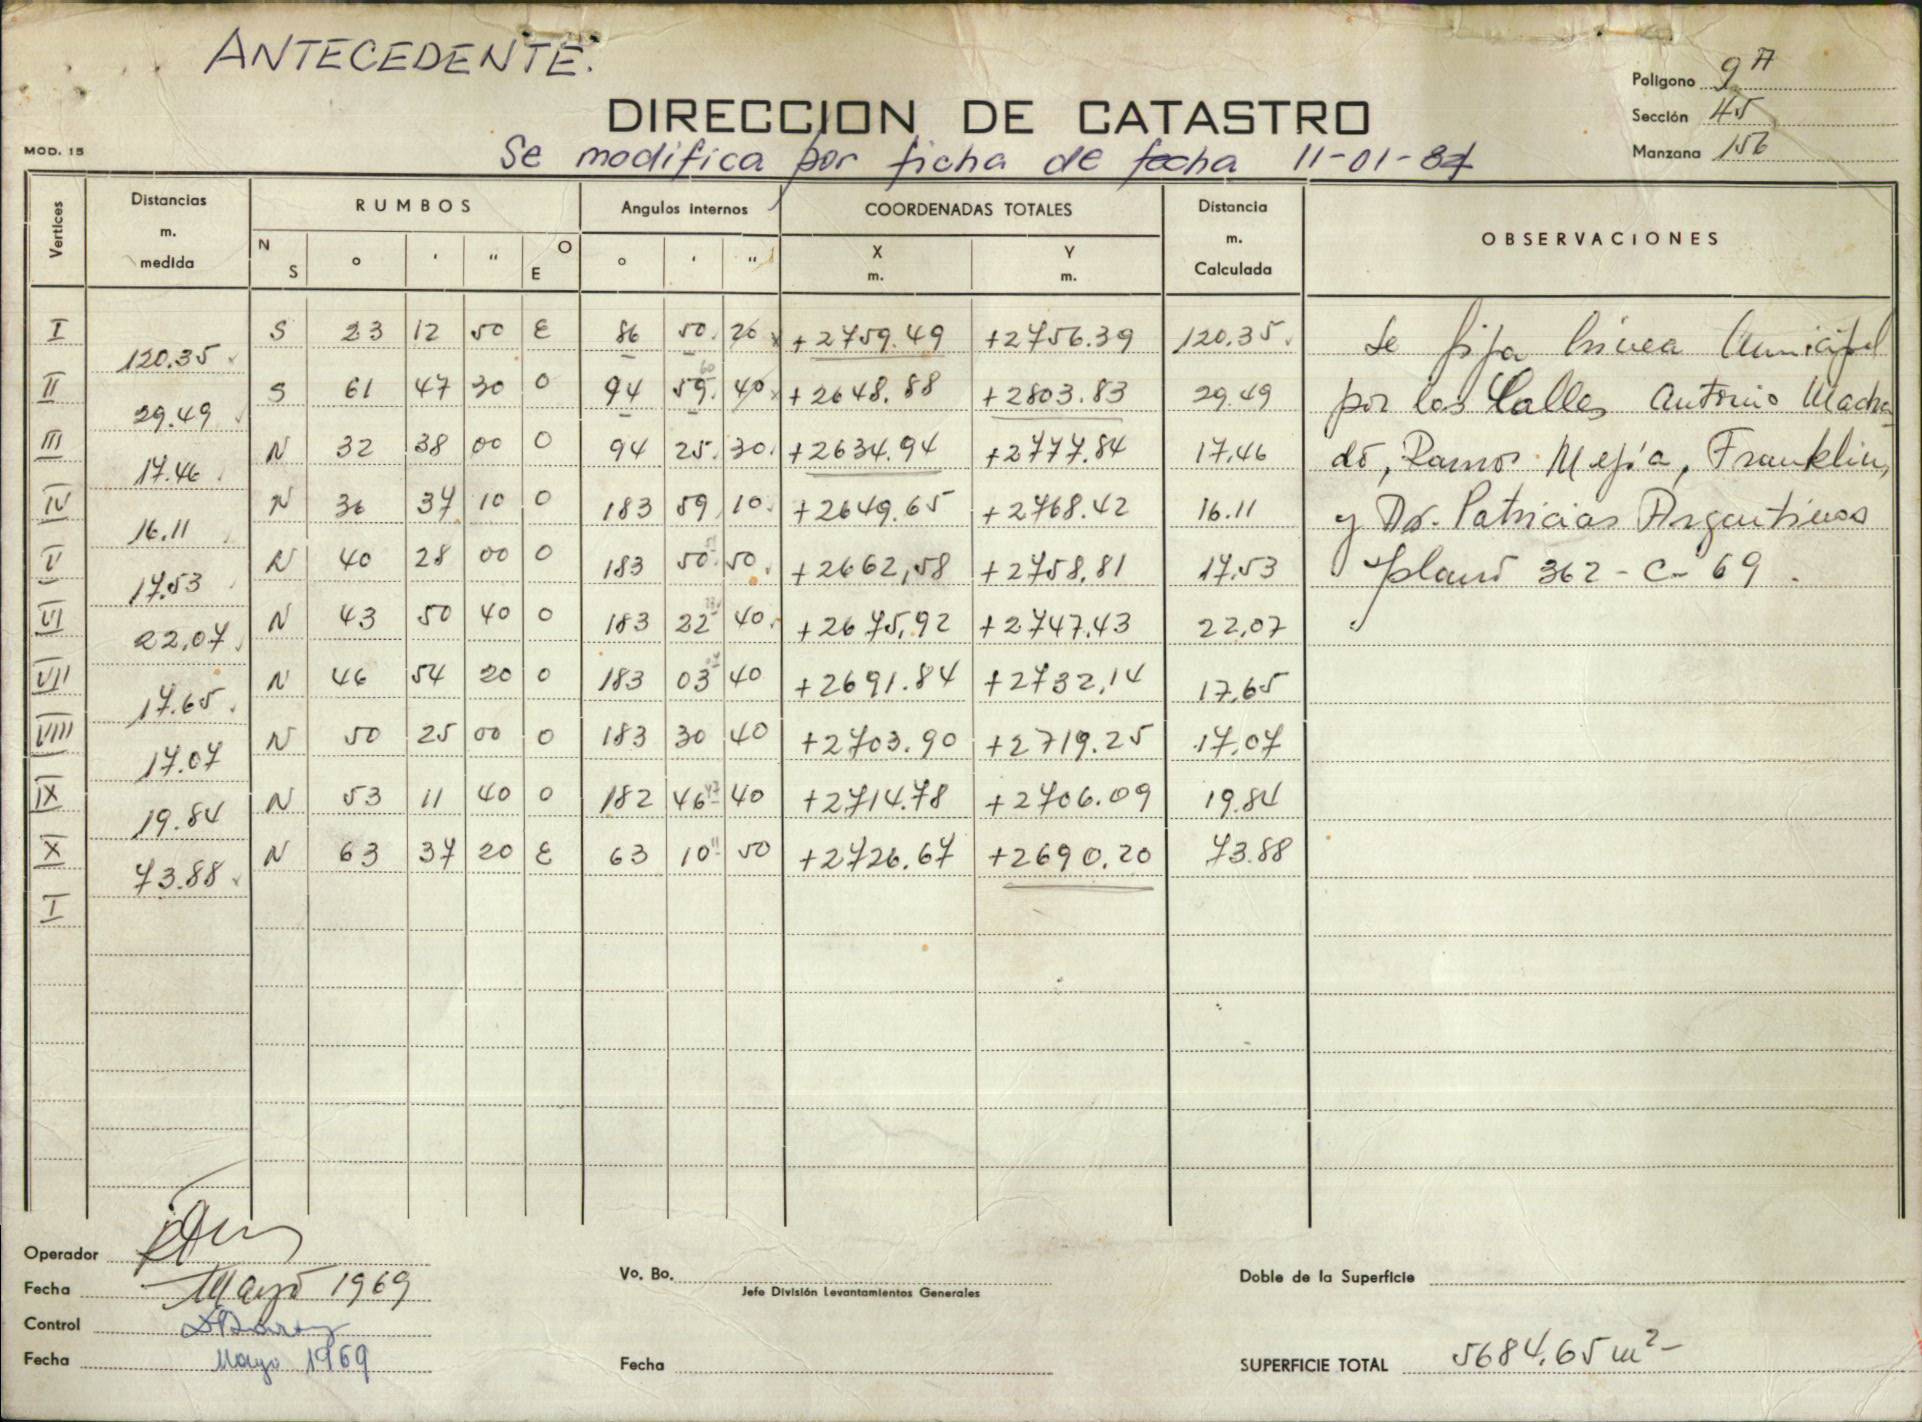 ANTECEDENTE:
Polígono 9A
DIRECCION DE CATASTRO
Sección 45
MOD. 15
Manzana 156
Se modifica por ficha de fecha 11-01-87
Vertices Distancias m. medida RUMBOS Angulos internos COORDENADAS TOTALES Distancia m. Calculada OBSERVACIONES
N S o ' " O E o ' " X m. Y m.
I 120.35 S 23 12 50 E 86 50 20 +2759.49 +2756.39 120.35 Se fija Línea Municipal
II 29.49 S 61 47 30 O 94 59 40 +2648.88 +2803.83 29.49 por las Calles Antonio Macha
III 17.46 N 32 38 00 O 94 25 30 +2634.94 +2777.84 17.46 do, Ramos Mejía, Franklin,
IV 16.11 N 36 37 10 O 183 59 10 +2649.65 +2768.42 16.11 y Av. Patricias Argentinas
V 17.53 N 40 28 00 O 183 50 50 +2662,58 +2758,81 17.53 plano 362-C-69.
VI 22,07 N 43 50 40 O 183 22 40 +2675,92 +2747.43 22,07
VII 17.65 N 46 54 20 O 183 03 40 +2691.84 +2732,14 17,65
VIII 17.07 N 50 25 00 O 183 30 40 +2703.90 +2719.25 17,07
IX 19.84 N 53 11 40 O 182 46 40 +2714.78 +2706.09 19.84
X 73.88 N 63 37 20 E 63 10 50 +2726.67 +2690.20 73.88
I
Operador
Fecha Mayo 1969
Control
Fecha Mayo 1969
Vo. Bo.
Jefe División Levantamientos Generales
Fecha
Doble de la Superficie
SUPERFICIE TOTAL 5684.65 m2-